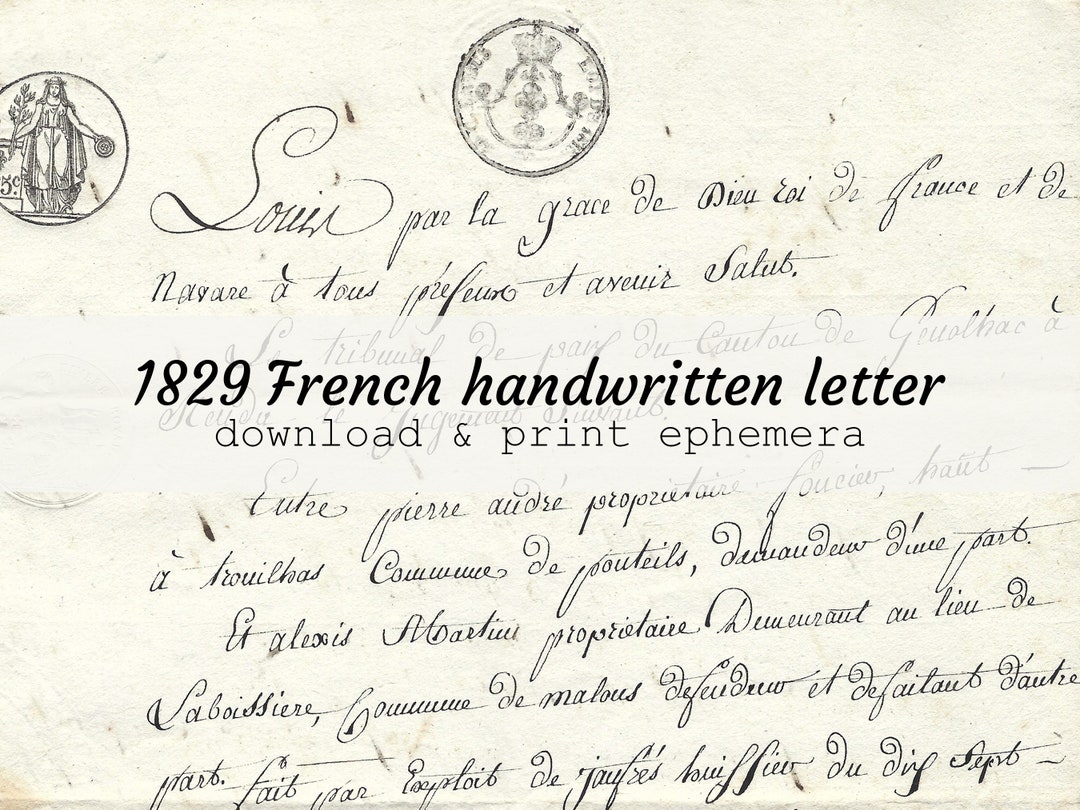 5c.
Louis par la grace de Dieu roi de france et de
Navare à tous présens et avenir Salut.
Le tribunal de paix du Canton de Genolhac à
1829 French handwritten letter
Rendu le Jugement Suivant.
download & print ephemera
Entre pierre andré proprietaire foncier,
à trouilhas Commune de ponteils, demandeur d'une part.
Et alexis Martin proprietaire Demeurant au lieu de
Laboissiere, Commune de malons defendeur et defaitant d'autre
part. fait par Exploit de jaufrés huissier du dix Sept —